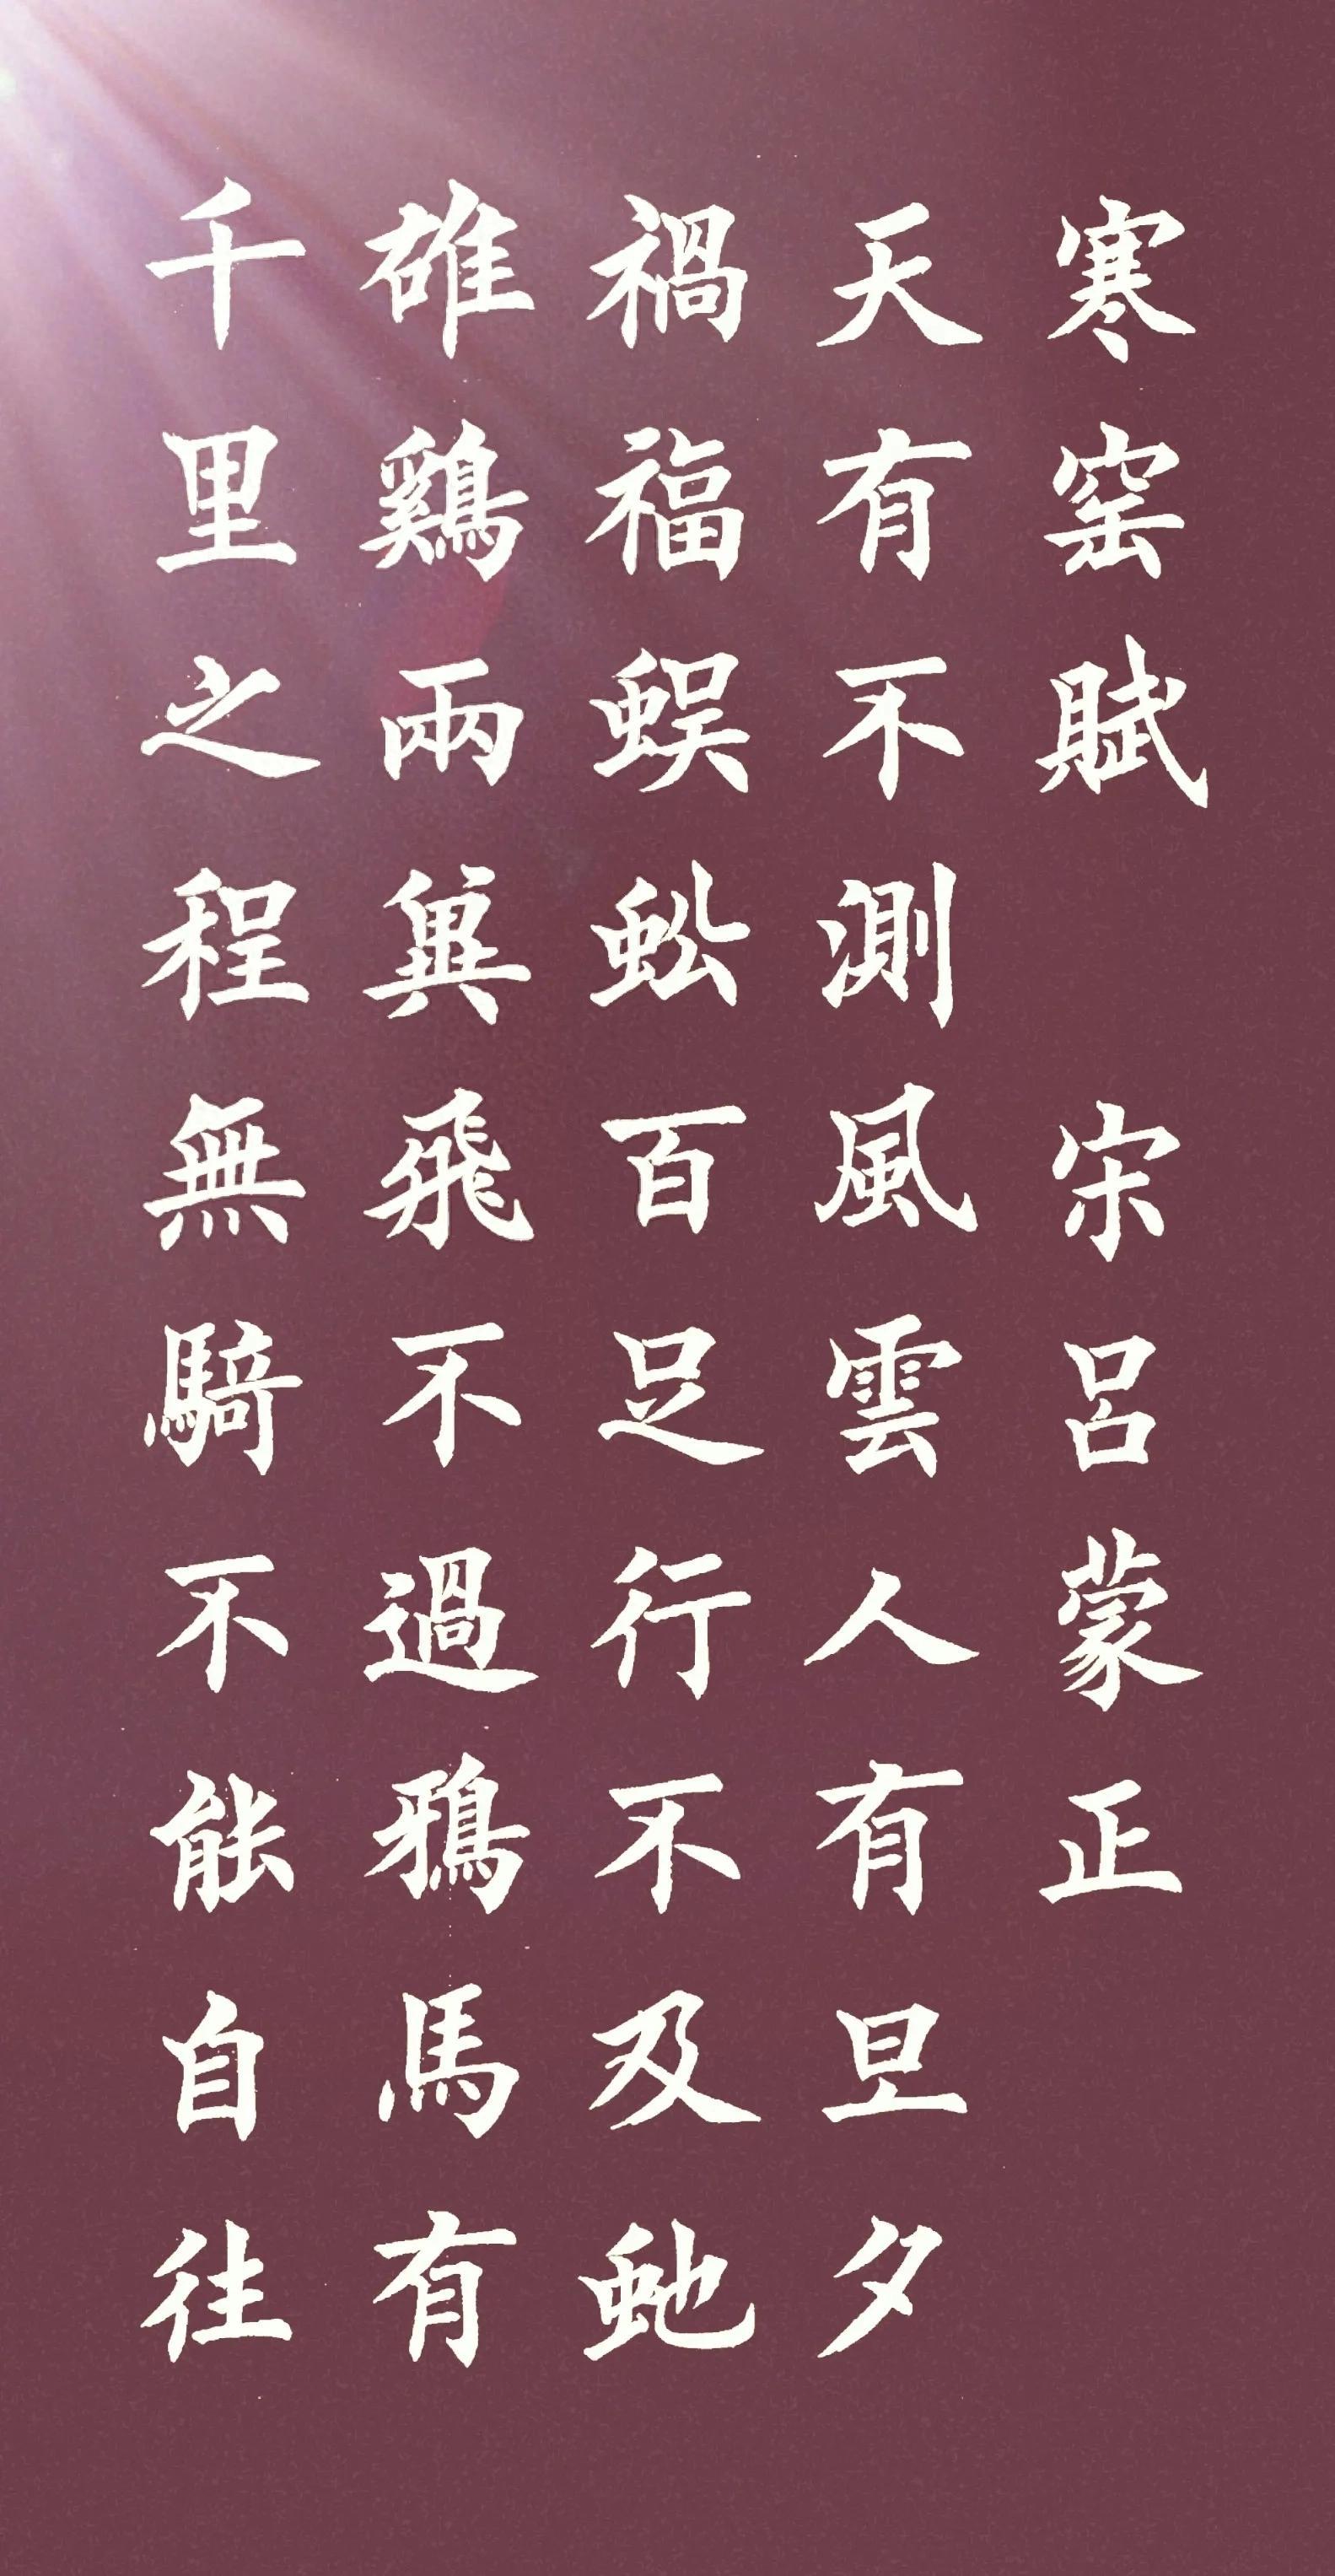 寒窑賦 宋呂蒙正
天有不測風雲人有旦夕
禍福蜈蚣百足行不及虵
雄鷄兩翼飛不過鴉馬有
千里之程無騎不能自往